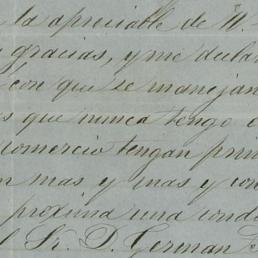 la apreciable de
gracias, y me decla
con que se manejan
que nunca tengo
comercio tengan prin
mas y mas y con
proxima una cond
Sr. D. German